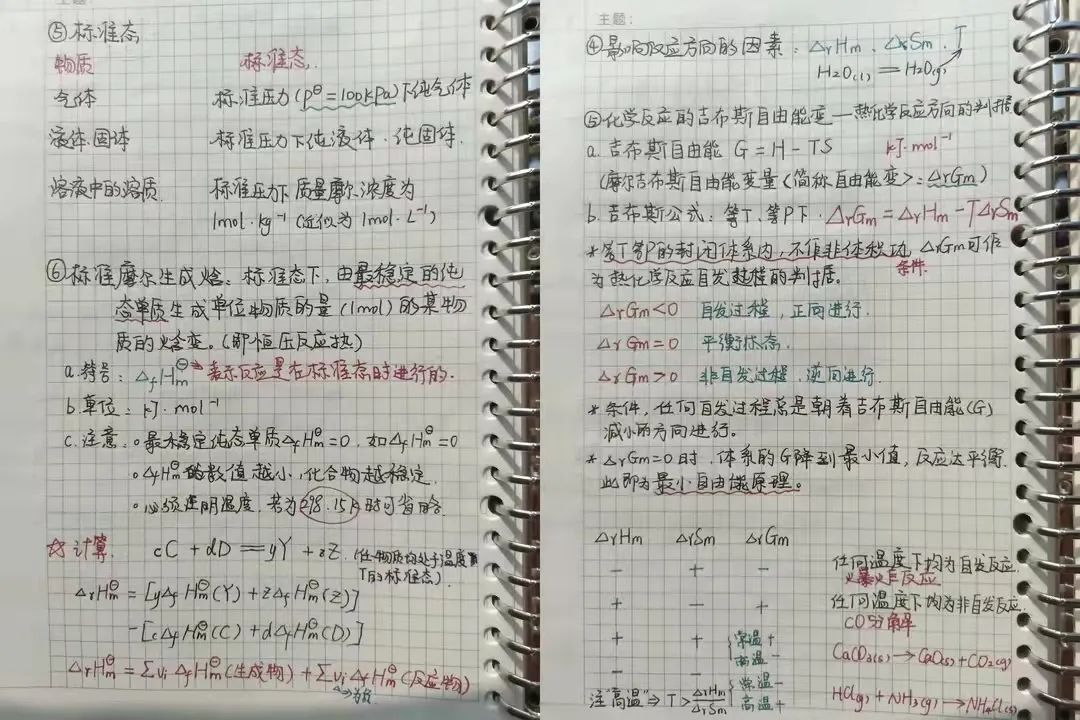 ⑤标准态
物质 标准态.
气体 标准压力(p⊖=100kPa)下纯气体
液体.固体 标准压力下纯液体.纯固体.
溶液中的溶质. 标准压力下质量摩尔浓度为
1mol·kg⁻¹(近似为1mol·L⁻¹)
⑥标准摩尔生成焓:标准态下,由最稳定的纯
态单质生成单位物质的量(1mol)的某物
质的焓变。(即恒压反应热)
a.符号:ΔfHm⊖→表示反应是在标准态时进行的.
b.单位:kJ·mol⁻¹
c.注意.。最稳定纯态单质ΔfHm⊖=0,如ΔfHm⊖=0
。ΔfHm⊖的数值越小,化合物越稳定.
。必须注明温度,若为298.15K时可省略.
☆计算. cC + dD = yY + zZ.(任一物质均处于温度
T的标准态)
ΔrHm⊖=[yΔfHm⊖(Y)+zΔfHm⊖(Z)]
-[cΔfHm⊖(C)+dΔfHm⊖(D)]
ΔrHm⊖=∑νiΔfHm⊖(生成物)+∑νiΔfHm⊖(反应物)
→为负
主题:
④影响反应方向的因素:ΔrHm.ΔrSm.T
H2O(l) = H2O(g)
⑤化学反应的吉布斯自由能变—热化学反应方向的判据
a.吉布斯自由能 G=H-TS kJ·mol⁻¹
(摩尔吉布斯自由能变量<简称自由能变>:ΔrGm)
b.吉布斯公式:等T、等P下.ΔrGm=ΔrHm-TΔrSm
*等T等P的封闭体系内,不作非体积功,ΔrGm可作
条件.
为热化学反应自发过程的判据。
ΔrGm<0 自发过程,正向进行.
ΔrGm=0 平衡状态.
ΔrGm>0 非自发过程.逆向进行.
*条件,任何自发过程总是朝着吉布斯自由能(G)
减小的方向进行。
*ΔrGm=0时.体系的G降到最小值,反应达平衡.
此即为最小自由能原理。
ΔrHm ΔrSm ΔrGm
- + - 任何温度下均为自发反应.
火暴火乍反应
+ - + 任何温度下均为非自发反应.
CO分解
+ + {常温+
高温- CaCO3(s)→CaO(s)+CO2(g)
- - {常温-
高温+ HCl(g)+NH3(g)→NH4Cl(s)
注"高温"⇒T>ΔrHm/ΔrSm